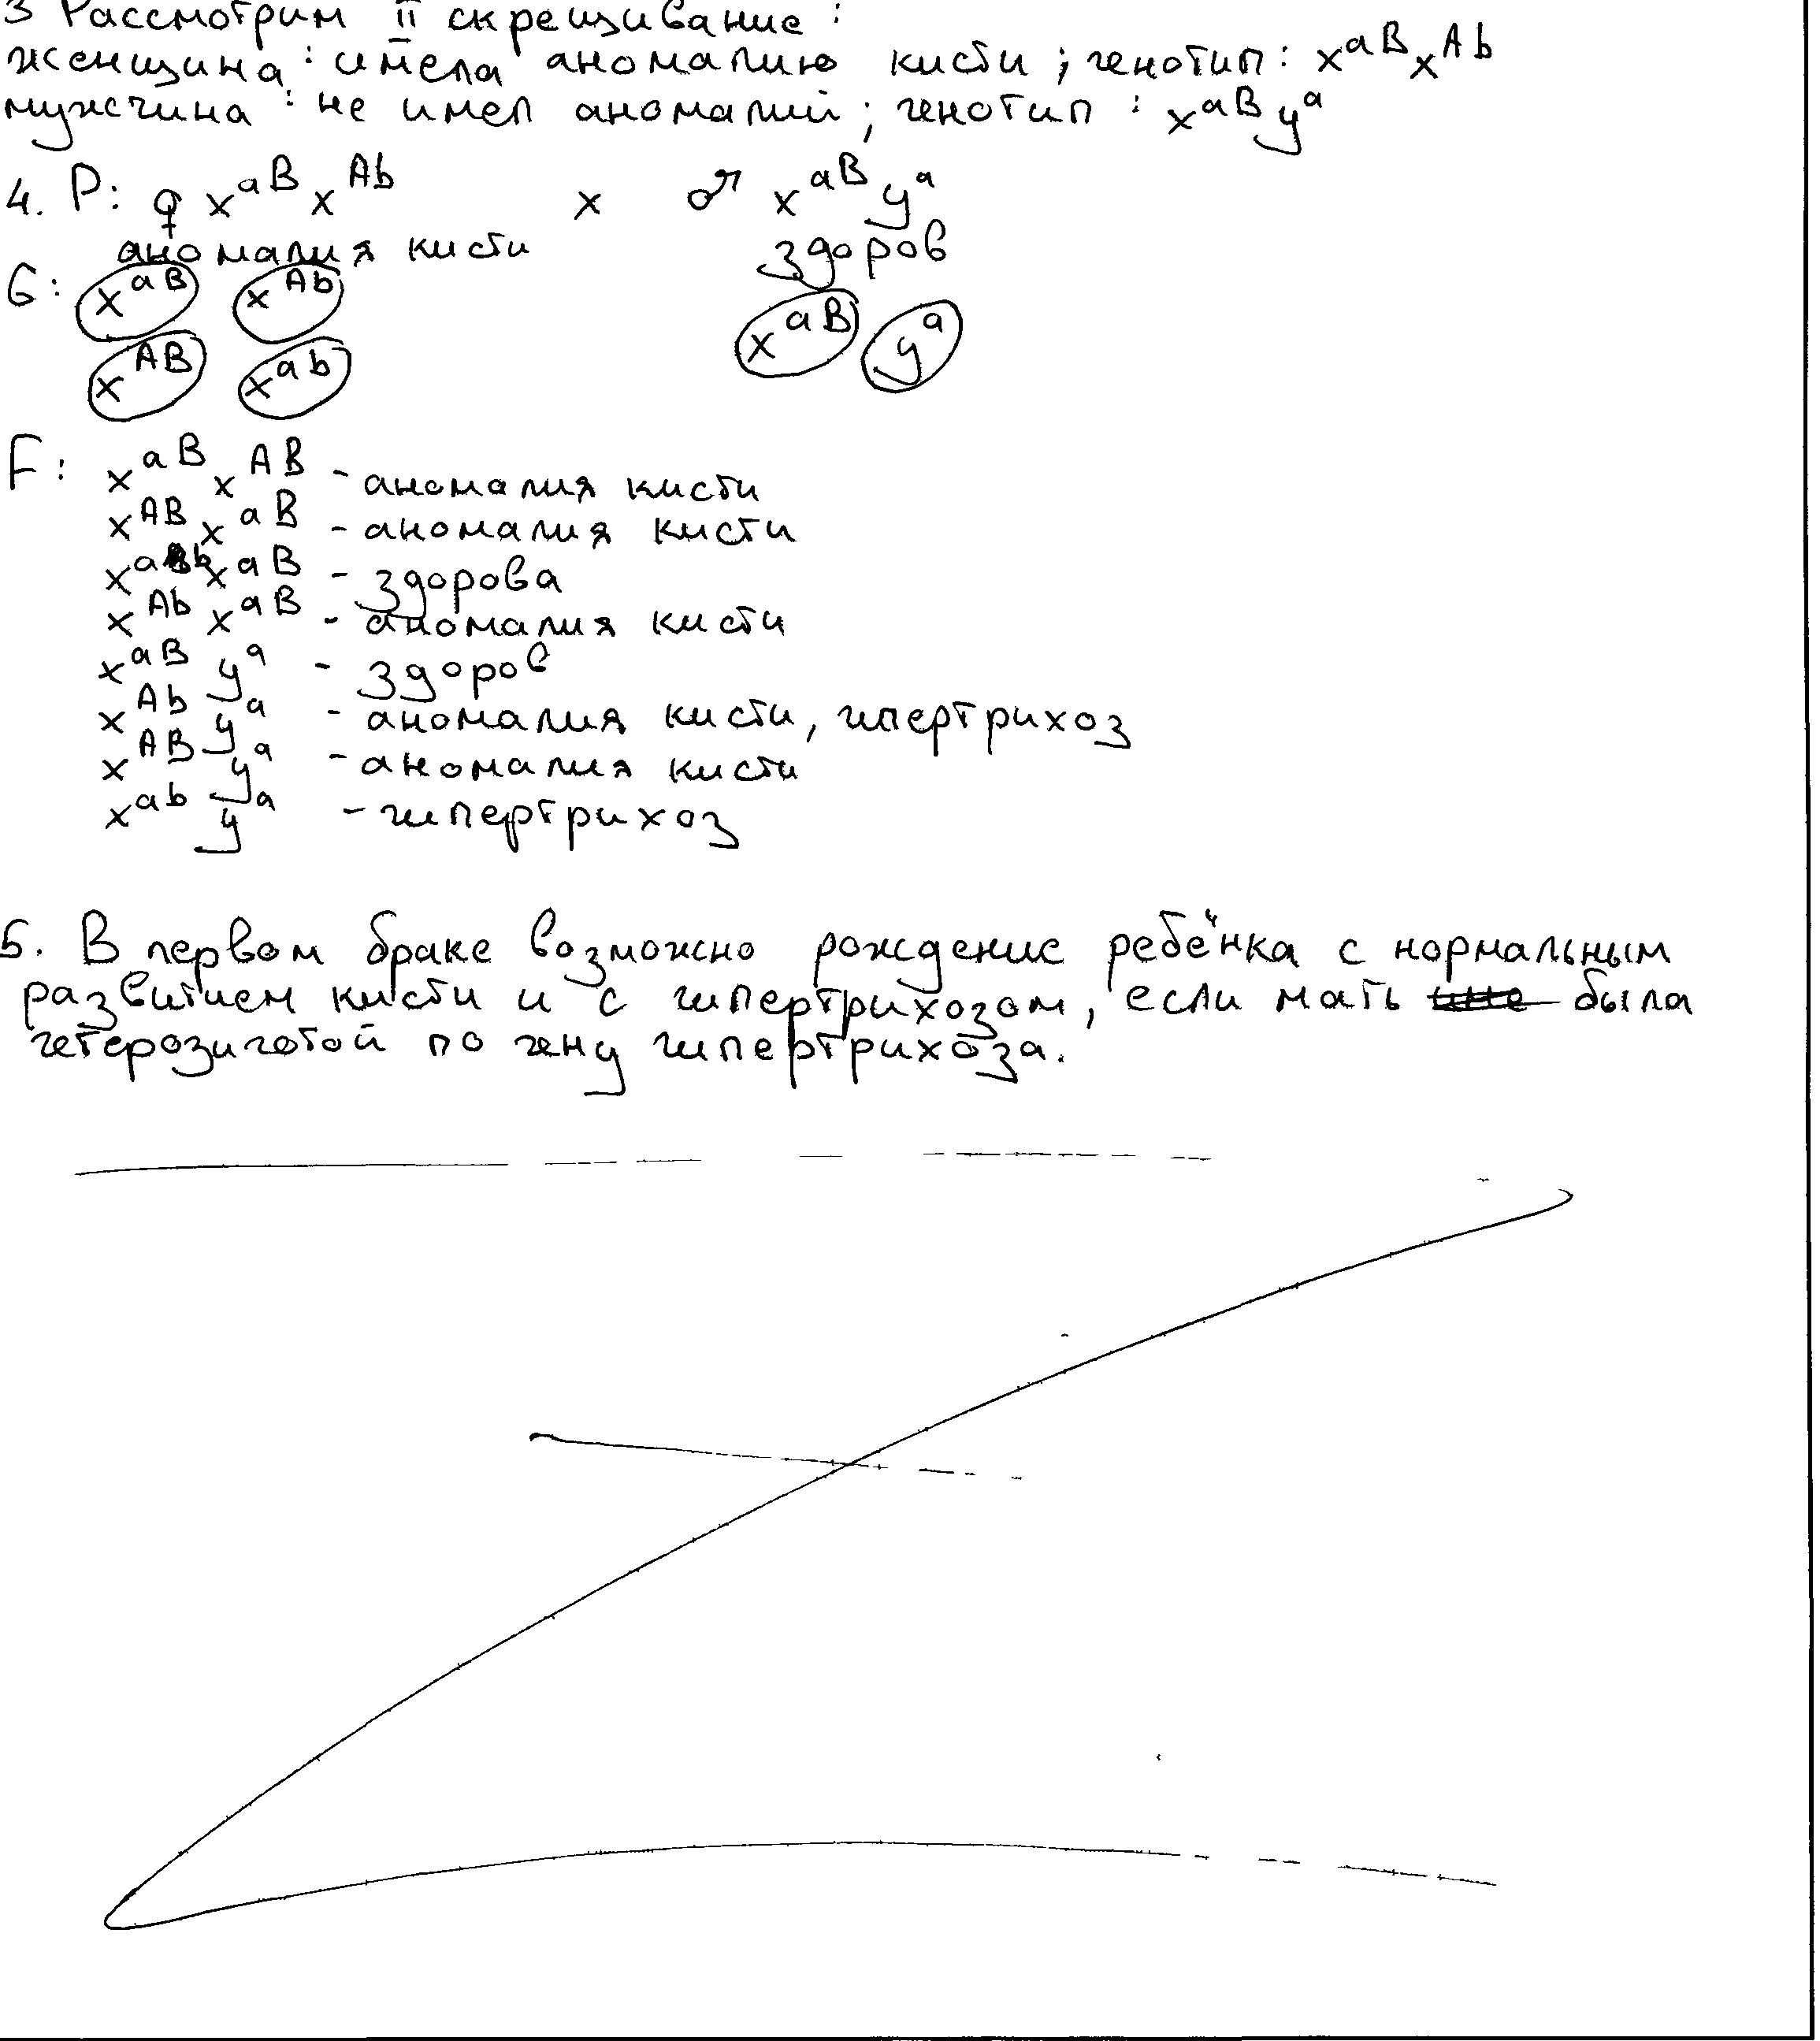 3 Рассмотрим II скрещивание:
женщина: имела аномалию кисти; генотип: x^aB x^Ab
мужчина: не имел аномалий; генотип: x^aB y^a
4. P: ♀ x^aB x^Ab x ♂ x^aB y^a
аномалия кисти здоров
G: x^aB x^Ab x^aB y^a
x^AB x^ab
F: x^aB x^AB - аномалия кисти
x^AB x^aB - аномалия кисти
x^ab x^aB - здорова
x^Ab x^aB - аномалия кисти
x^aB y^a - здоров
x^Ab y^a - аномалия кисти, гипертрихоз
x^AB y^a - аномалия кисти
x^ab y^a - гипертрихоз
5. В первом браке возможно рождение ребёнка с нормальным
развитием кисти и с гипертрихозом, если мать была
гетерозиготой по гену гипертрихоза.